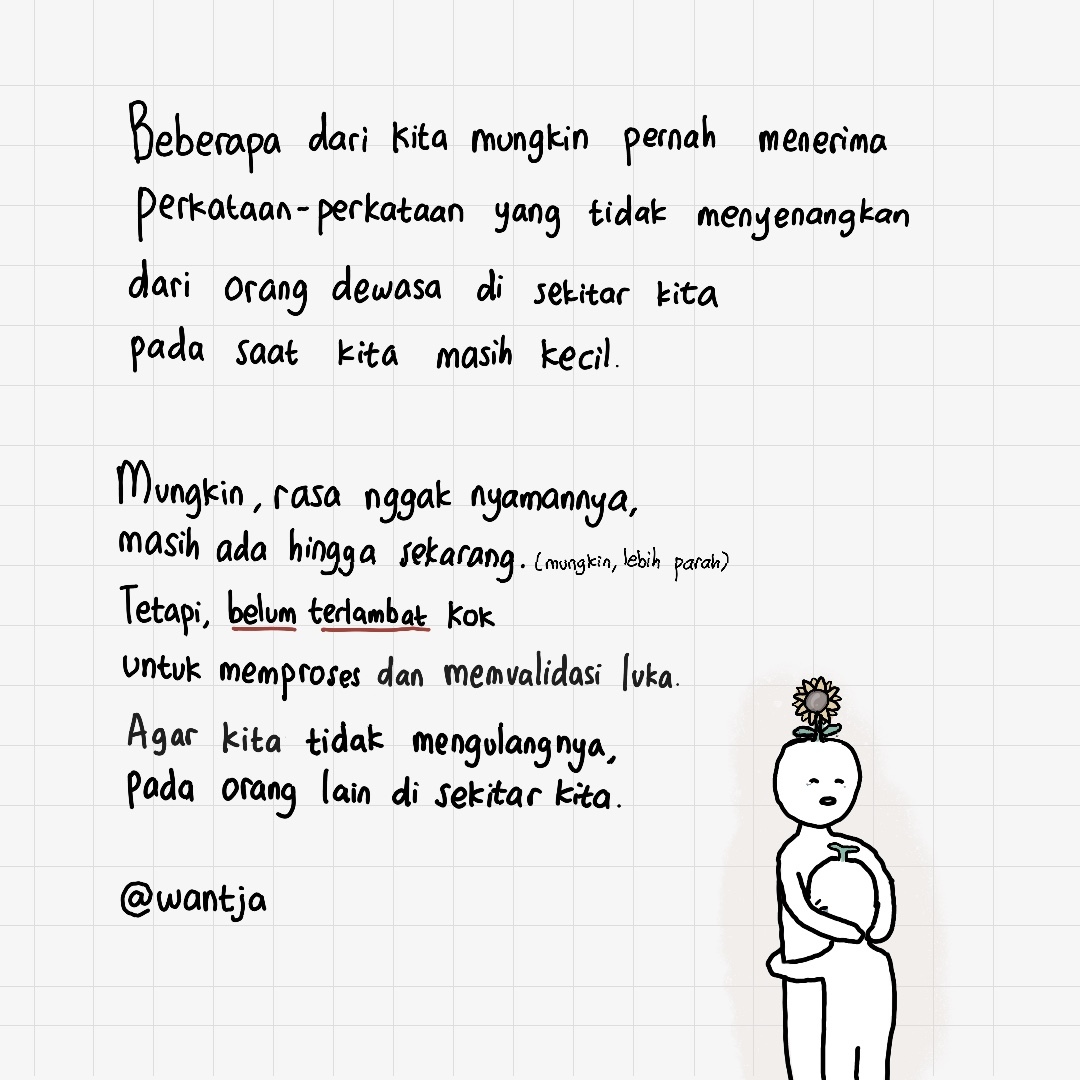 Beberapa dari kita mungkin pernah menerima
perkataan-perkataan yang tidak menyenangkan
dari orang dewasa di sekitar kita
pada saat kita masih kecil.
Mungkin, rasa nggak nyamannya,
masih ada hingga sekarang. (mungkin, lebih parah)
Tetapi, belum terlambat kok
untuk memproses dan memvalidasi luka.
Agar kita tidak mengulangnya,
pada orang lain di sekitar kita.
@wantja